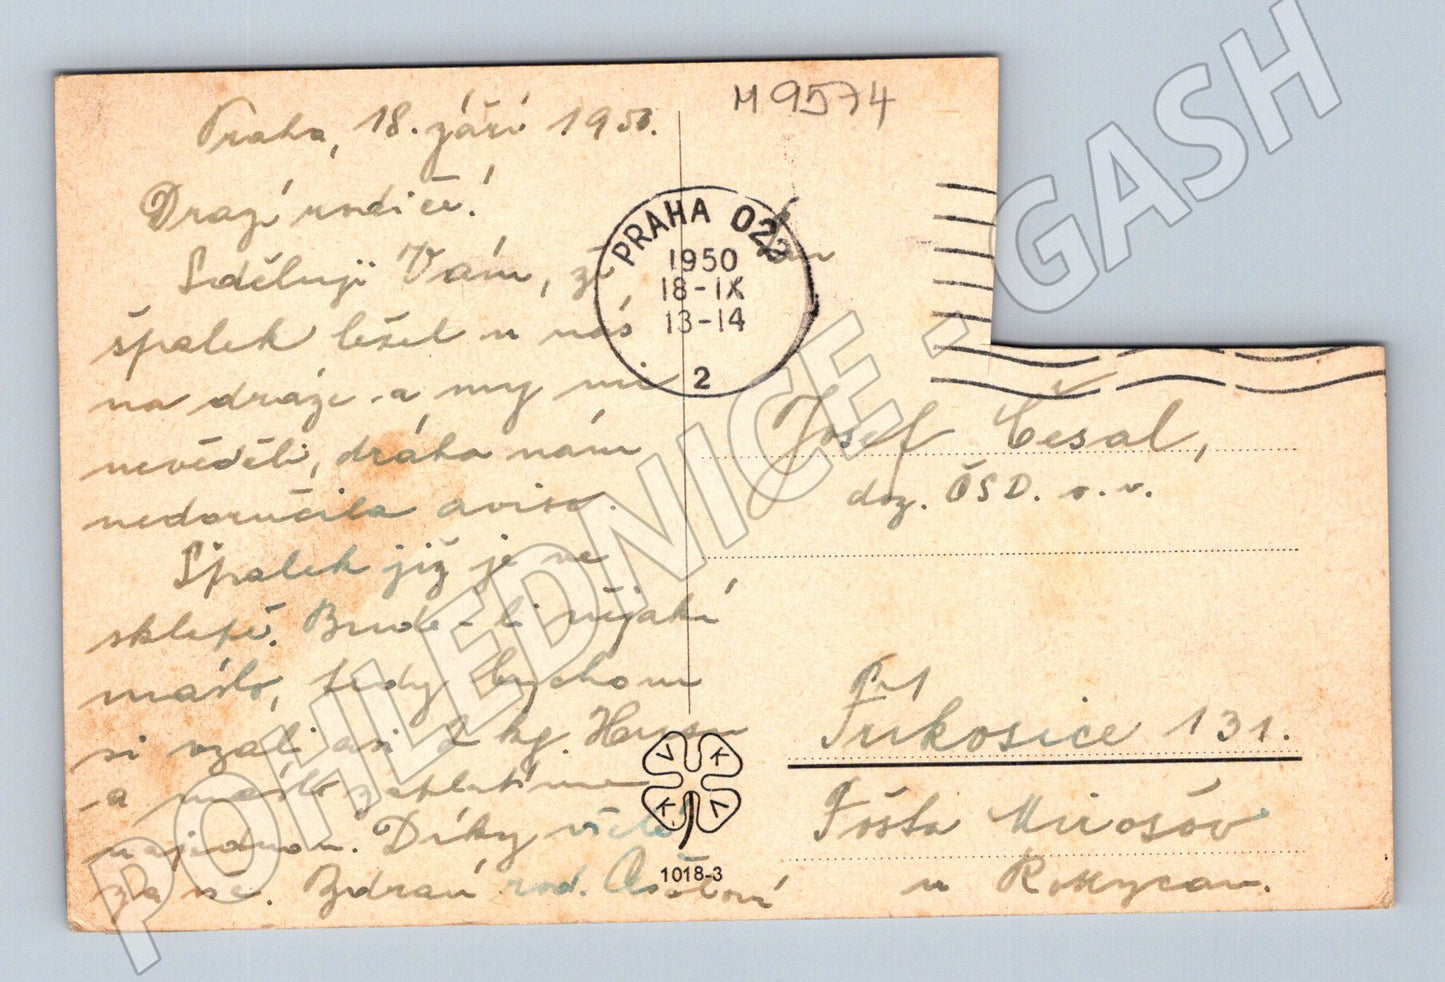 M 9574
Praha, 18. září 1950.
Drazí rodiče!
Sděluji Vám, že
špalek ležel u nás
na dráze a my
nevěděli, dráha nám
nedoručila aviso.
Špalek již je ve
sklepě. Bude-li nějaké
máslo, tedy bychom
si vzali asi 2 kg.
a máslo zaplatíme
najednou. Díky
za vše. Zdraví rod.
PRAHA 022
1950
18-IX
13-14
2
Josef Česal,
doz. ČSD. v. v.
Příkosice 131.
Pošta Mirošov
u Rokycan.
V K
K V
1018-3
POHLEDNICE - GASH